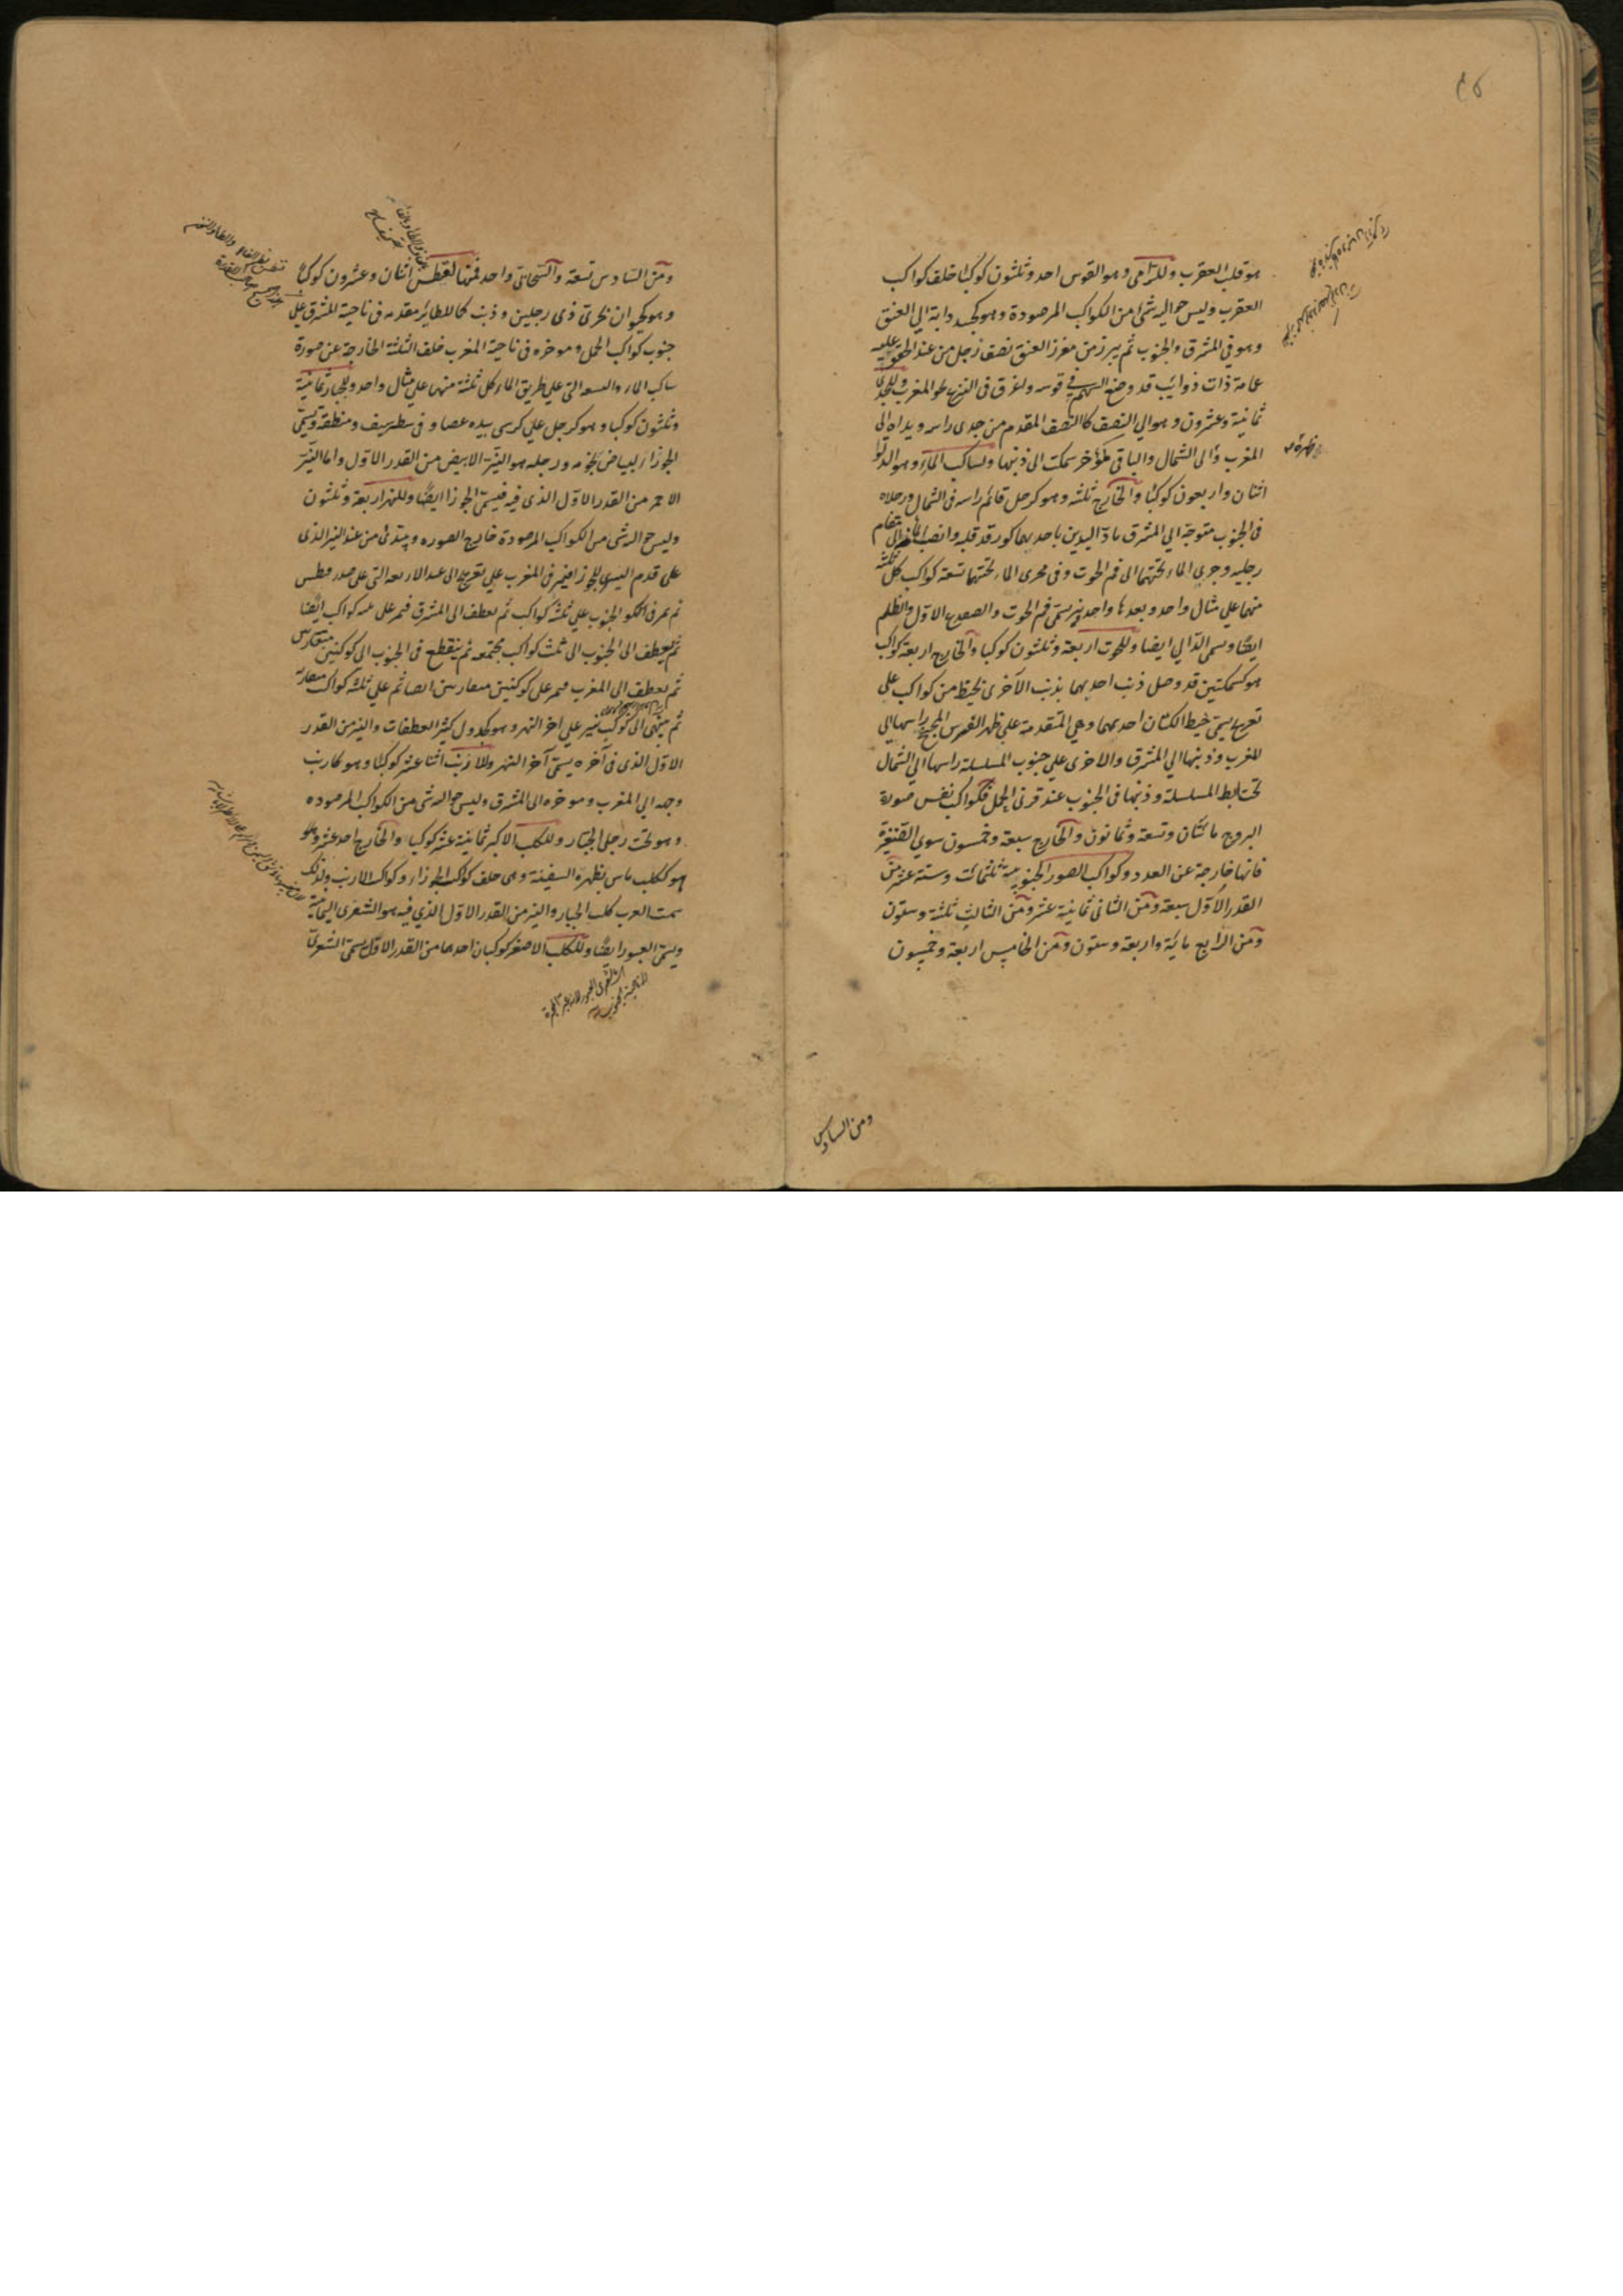 هو قلب العقرب وللرامى وهو القوس احد وثلثون كوكبا خلف كواكب
العقرب وليس حواليه شئ من الكواكب المرصودة وهو كجسد دابة الي العنق
وهو في المشرق والجنوب ثم يبرز من مغرز العنق نصف رجل من عند الحقو عليه
عمامة ذات ذوايب قد وضع السهم في قوسه واغرق في النزع نحو المغرب وللجدى
ثمانية وعشرون وهو الي النصف كالنصف المقدم من جدى راسه ويداه الى
المغرب والى الشمال والباقى كمؤخر سمكة الى ذنبها ولساكب الماء وهو الدلو
اثنان واربعون كوكبا والخارج ثلثه وهو كرجل قائم راسه فى الشمال ورجلاه
فى الجنوب متوجه الي المشرق ماد اليدين باحديهما كوز قد قلبه وانصب الماء الى مقام
رجليه وجرى الماء تحتهما الى فم الحوت وفى مجرى الماء تحتها تسعة كواكب كل ثلثة
منها على مثال واحد وبعدها واحد نير يسمى فم الحوت والضفدع الاول والظليم
ايضا ويسمى الدالي ايضا وللحوت اربعة وثلثون كوكبا والخارج اربعة كواكب
هو كسمكتين قد وصل ذنب احديهما بذنب الآخرى بخيط من كواكب على
تعريج يسمى خيط الكتان احديهما وهي المتقدمة علي ظهر الفرس المجنح راسها الى
المغرب وذنبها الي المشرق والاخرى علي جنوب المسلسلة راسها الي الشمال
تحت ابط المسلسلة وذنبها فى الجنوب عند قرنى الحمل فكواكب نفس صورة
البروج مائتان وتسعة وثمانون والخارج سبعة وخمسون سوي الضفيرة
فانها خارجة عن العدد وكواكب الصور الجنوبية ثلثمائة وستة عشر من
القدر الاول سبعة ومن الثانى ثمانية عشر ومن الثالث ثلثة وستون
ومن الرابع مائة واربعة وستون ومن الخامس اربعة وخمسون
ومن السادس
ومن السادس تسعة والسحابى واحد فمنها لقيطس اثنان وعشرون كوكبا
وهو كحيوان بحرى ذى رجلين وذنب كالطاير مقدمه فى ناحية المشرق على
جنوب كواكب الحمل وموخره فى ناحية المغرب خلف الثلثة الخارجة عن صورة
ساكب الماء والتسعة التى على طريق الماء كل ثلثة منها على مثال واحد وللجبار ثمانية
وثلثون كوكبا وهو كرجل على كرسى بيده عصا وفى وسطه سيف ومنطقة ويسمى
الجوزا لبياض نجومه ورجله هو النير الابيض من القدر الاول واما النير
الاحمر من القدر الاول الذى فيه فيسمى الجوزا ايضا وللنهر اربعة وثلثون
وليس حواليه شى من الكواكب المرصودة خارج الصوره ويبتدئ من عند النير الذى
على قدم اليسرى للجوزا فيمر فى المغرب على تعريج الى عند الاربعه التى على صدر قيطس
ثم يمر فى الجنوب علي ثلثة كواكب ثم يعطف الى المشرق فيمر على كواكب ايضا
ثم يعطف الى الجنوب الى ثلث كواكب مجتمعه ثم ينقطع فى الجنوب الى كوكبين متقاربين
ثم يعطف الى المغرب فيمر على كوكبين متقاربين ايضا ثم علي ثلثة كواكب متقاربة
ثم ينتهى الى كوكب نير على اخر النهر وهو كجدول كثير العطفات والنير من القدر
الاول الذى فى آخره يسمى آخر النهر وللارنب اثنا عشر كوكبا وهو كارنب
وجهه الي المغرب وموخره الى المشرق وليس حواليه شى من الكواكب المرصوده
وهو تحت رجلى الجبار وللكلب الاكبر ثمانية عشر كوكبا والخارج احد عشر وهو
هو ككلب بظهره السفينة وهى خلف كواكب الجوزاء وكواكب الارنب ولذلك
سمت العرب كلب الجبار والنير من القدر الاول الذي فيه هو الشعرى اليمانية
ويسمى العبور ايضا وللكلب الاصغر كوكبان احدهما من القدر الاول يسمى الشعرى